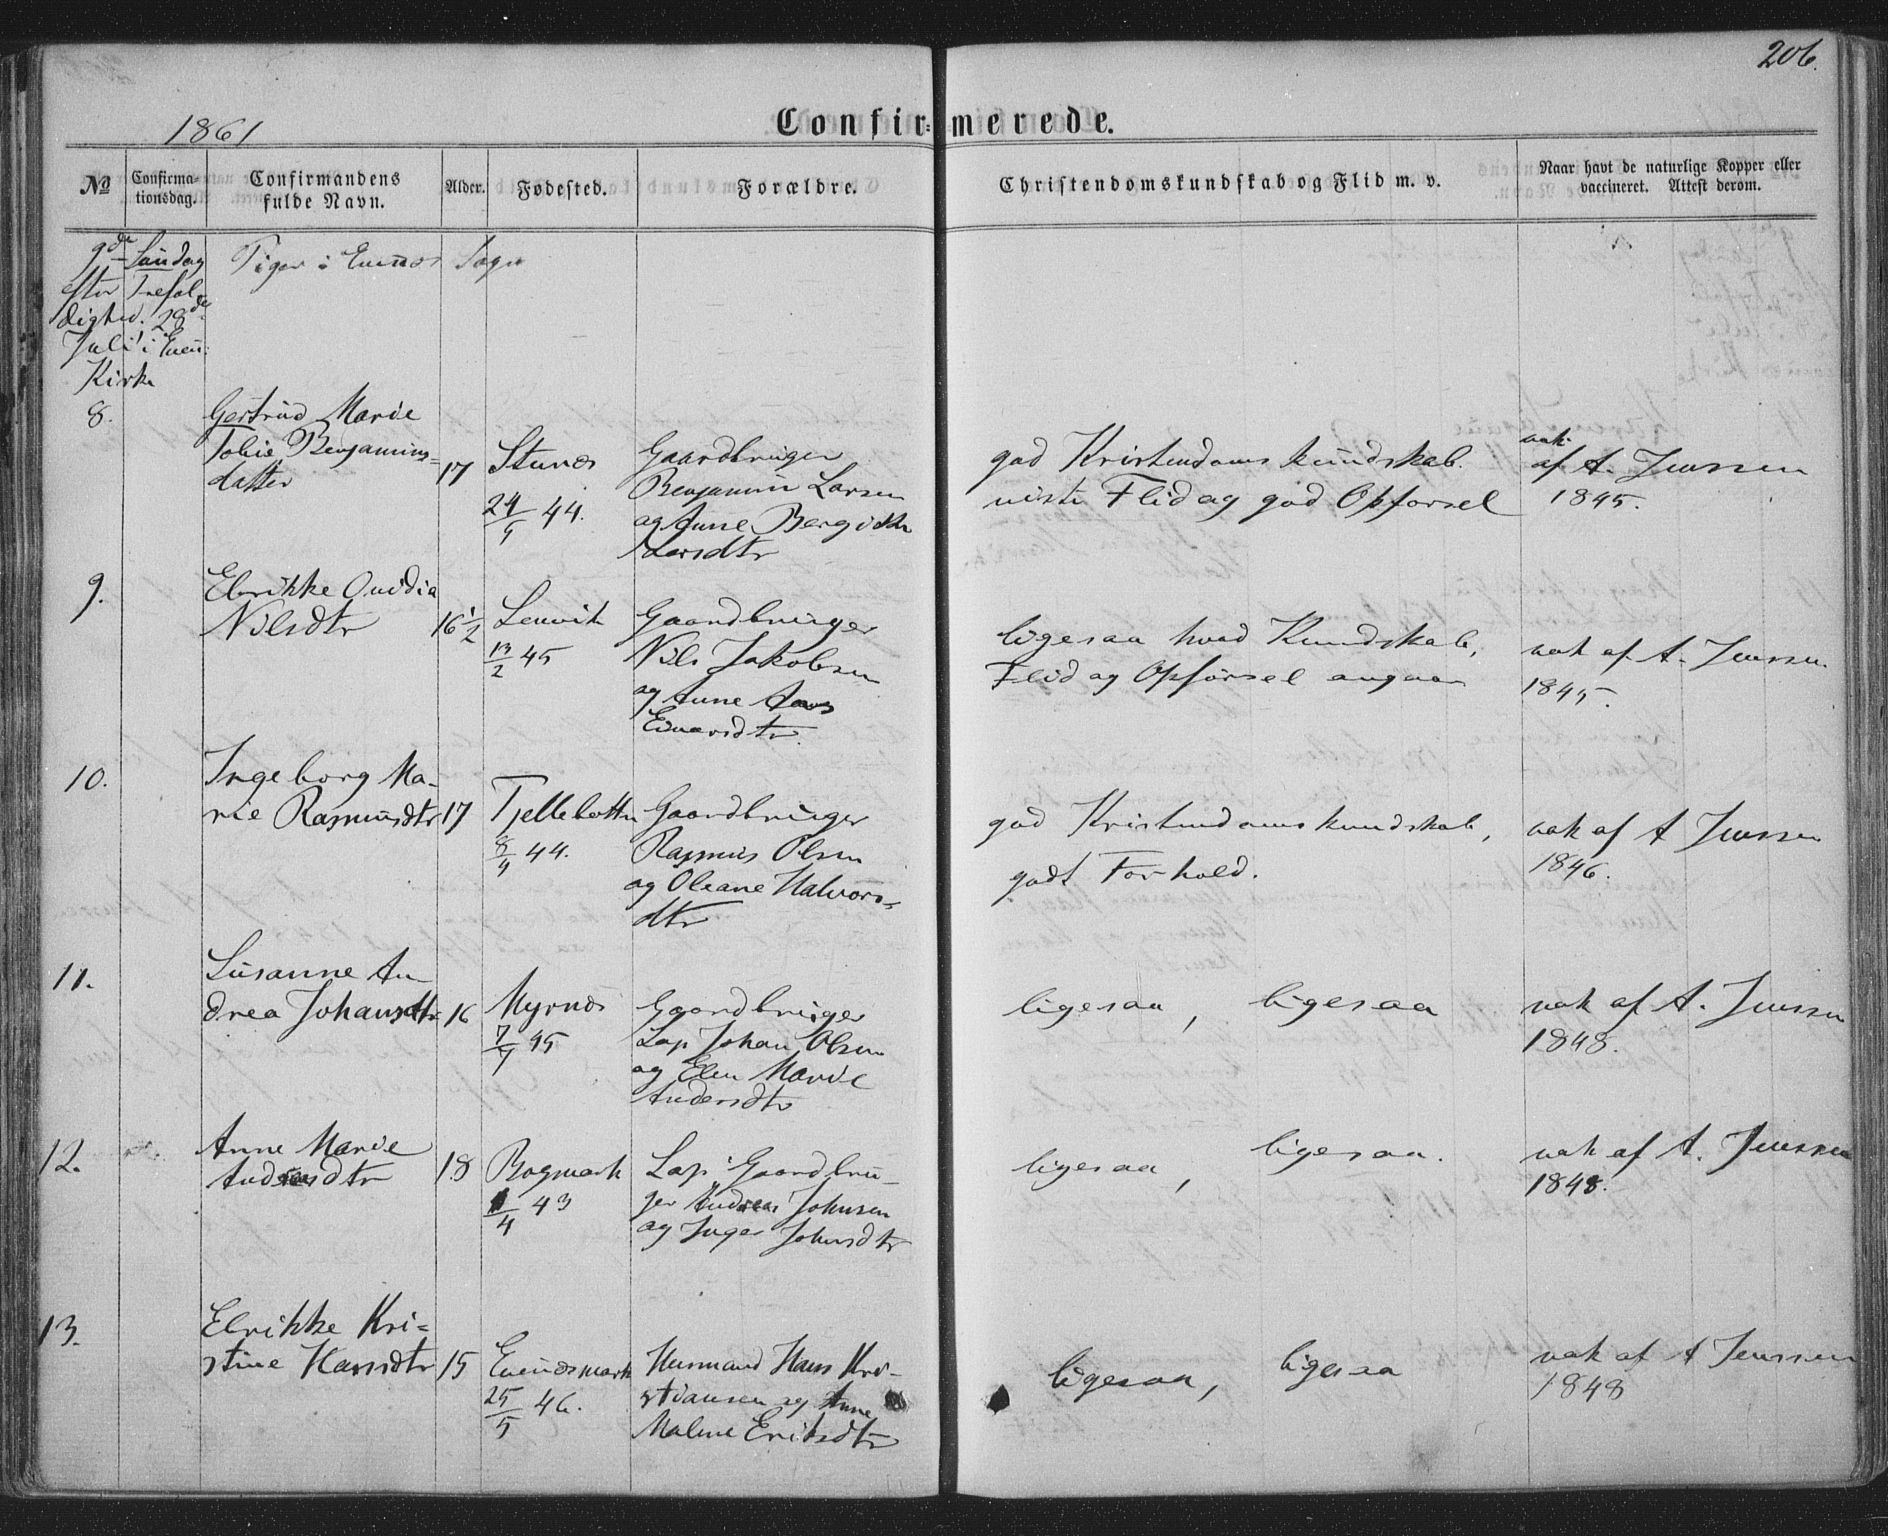 206.
1861
Confir= merede.
No
Confirma-
tionsdag.
Confirmandens
fulde Navn.
Alder.
Fødested.
Forældre.
Christendomskundskab og Flid m. v.
Naar havt de naturlige Kopper eller
vaccineret. Attest derom.
9de Søndag
efter Trefol
dighed. 28de
Juli i Even:
Kirke
Piger i Evenæs Sogn
8.
Gertrud Marie
Tobie Benjamins=
datter
17
Stunæs
24/9 44.
Gaardbruger
Benjamin Larsen
og Anne Bergitte
Larsdtr
god Kristendomskundskab.
viste Flid og god Opførsel
vak.
af A. Jenssen
1845.
9.
Elrikke Ovidia
Nilsdtr
16 1/2
Lenvik
13/2 45
Gaardbruger
Nils Jakobsen
og Anne
Edvardtr.
ligesaa hvad Kundskab,
Flid og Opførsel angaar
vak af A. Jenssen.
1845.
10.
Ingeborg Ma-
rie Rasmusdtr
17
Tjellebotten
8/4 44.
Gaardbruger
Rasmus Olsen
og Oleane Halvors=
dtr
god Kristendomskundskab,
godt Forhold.
vak af A Jenssen
1846.
11.
Susanne An
drea Johansdtr
16
Myrnæs
7/9 45
Gaardbruger
Lap Johan Olsen
og Elen Marie
Andersdtr
ligesaa, ligesaa
vak af A. Jenssen
1848.
12.
Anne Marie
Andreasdtr
18
Bogmark
1/4 43
Lap, Gaardbru-
ger Andreas Johnsen
og Inger Johnsdtr
ligesaa, ligesaa.
vak af A. Jenssen
1848.
13.
Elrikke Kri=
stine Hansdtr
15
Evenæsmark
25/5 46.
Husmand Hans Kri-
stiansen og Anne
Malene Eriksdtr
ligesaa, ligesaa
vak af A Jenssen
1848